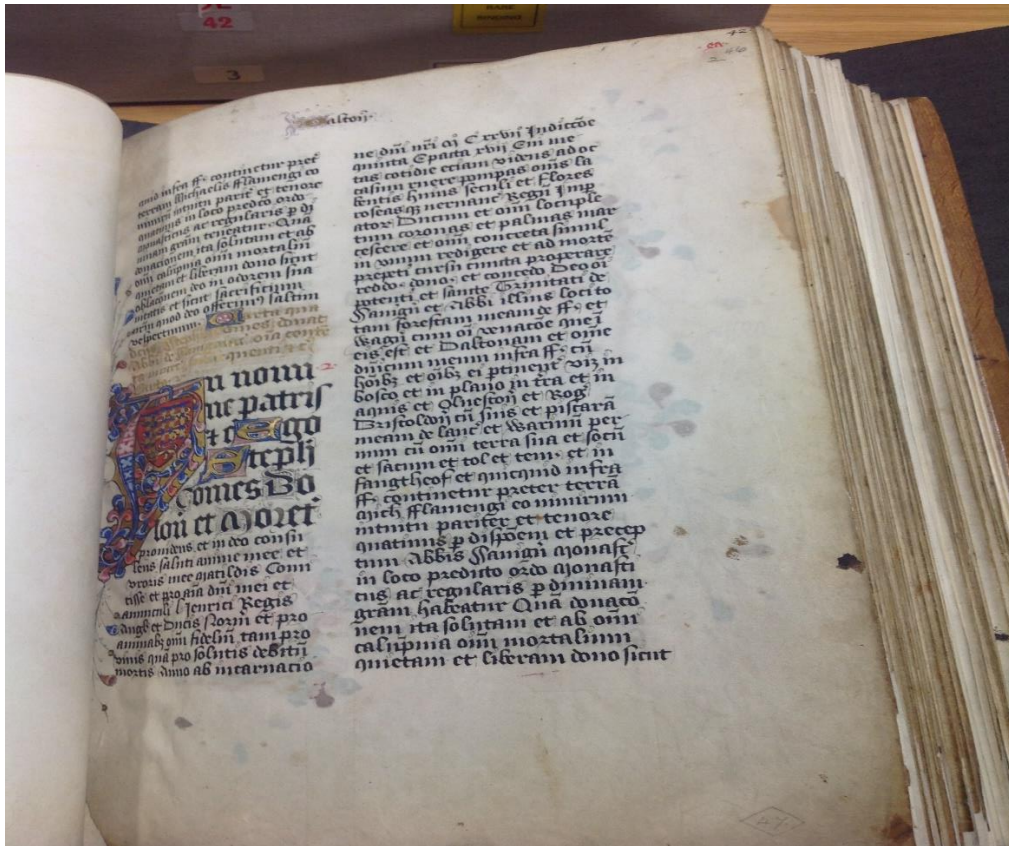 42
3
RARE
42
46
Dalton
amo infra ff. continetur pret
terram Michaelis fflamengi eo
quatinus in loco predco ordo
monasticus ac regularis p di
uinam gram teneatur. Quā
donacionem ita solutam et ab
om̄i calūpnia om̄i mortaliū
quietam et liberam dono sicut
oblaconem deo in odorem sua
uitatis et sicut sacrificium
quod deo offerim⁹ saltim
vespertinum. Carta qua
In nomi
ne patris
&c Ego
Steph
Comes Bo
lon et Moret
prouidens et in deo consu
lens saluti anime mee et
vxoris mee Matildis Comi
tisse et pro aīa dn̄i mei et
auunculi Henrici Regis
Angl et Ducis Norm̄ et pro
animab; om̄i fideliū tam pro
viuis quā pro solutis debitū
mortis Anno ab incarnacio
ne dn̄i nr̄i M C xxvij Indiccōe
quinta Epacta xvij Ein me
tas cotidie eciam videns ad oc
casum ruere pompas om̄s la
bentis huius seculi et Flores
roseasq; vernanc Regū Imp
ator Ducum et om̄i locuple
tum coronas et palmas mar
cescere et om̄i concreta simul
in vnum redigere et ad mortē
prepeti cursu cuncta properare
reddo dono et concedo Deo oī
potenti et sancte Trinitati de
Sauign̄ et Abbi illius loci to
tam forestam meam de ff. et
Wagn̄ cum oī venacōe que ī
eis est et Daltonam et om̄e
dn̄icum meum infra ff. cū
hōib; et oīb; ei ptinent vij in
bosco et in plano in tr̄a et in
aquis et Oluestoñ et Rog
Bristoldoñ cū suis et piscarā
meam de Lanc et Warinū par
uum cū om̄i terra sua et socū
et sacum et tol et tem et in
fangtheof et quicquid infra
ff. continetur preter terrā
Mich fflamengi eo nimirum
intuitu pariter et tenore
quatinus p dispōem et precep
tum Abbis Sauign̄ Monast
in loco predicto ordo Monasti
cus ac regularis p diuinam
gram habeatur Quā donacō
nem ita solutam et ab om̄i
calūpnia om̄i mortalium
quietam et liberam dono sicut
47